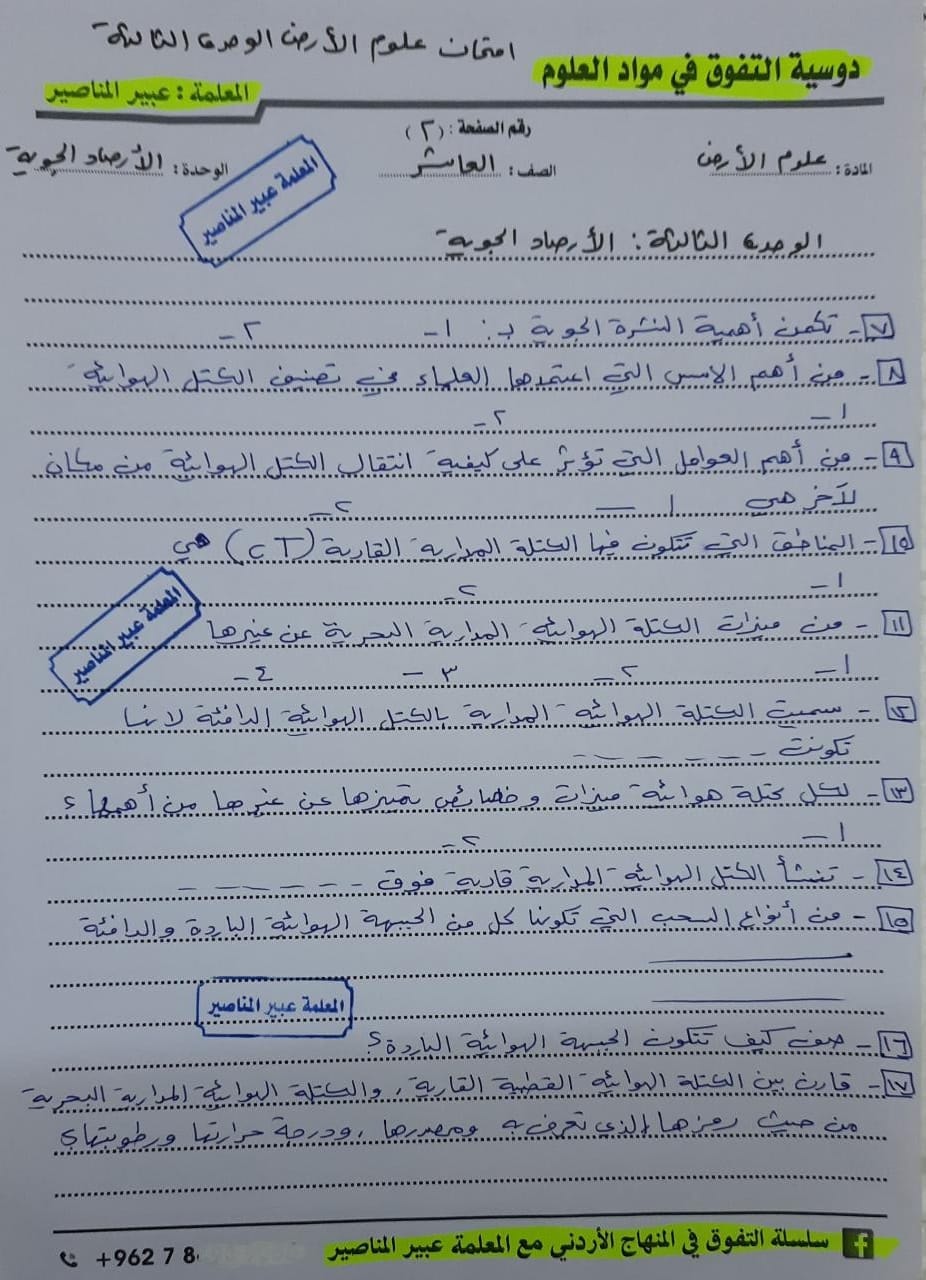 امتحان علوم الأرض الوحدة الثالثة
دوسية التفوق في مواد العلوم
المعلمة : عبير المناصير
رقم الصفحة : (٢)
المادة: علوم الأرض
الصف: العاشر
الوحدة: الأرصاد الجوية
المعلمة عبير المناصير
الوحدة الثالثة: الأرصاد الجوية
٧- تكمن أهمية النشرة الجوية بـ: ١- ٢-
٨- من أهم الاسس التي اعتمدها العلماء في تصنيف الكتل الهوائية
١- ٢-
٩- من أهم العوامل التي تؤثر على كيفية انتقال الكتل الهوائية من مكان
لآخر هي ١- ٢-
١٥- المناطق التي تتكون فيها الكتلة المدارية القارية (cT) هي
١- ٢-
المعلمة عبير المناصير
١١- من ميزات الكتلة الهوائية المدارية البحرية عن غيرها
١- ٢- ٣- ٤-
١٢- سميت الكتلة الهوائية المدارية بالكتل الهوائية الدافئة لانها
تكونت - - - - - -
١٣- لكل كتلة هوائية ميزات وخصائص تميزها عن غيرها من أهمها؟
١- ٢-
١٤- تنشأ الكتل الهوائية المدارية قارية فوق - - - - - -
١٥- من أنواع السحب التي تكونها كل من الجبهة الهوائية الباردة والدافئة
المعلمة عبير المناصير
١٦- صف كيف تتكون الجبهة الهوائية الباردة؟
١٧- قارن بين الكتلة الهوائية القطبية القارية، والكتلة الهوائية المدارية البحرية
من حيث رمزها الذي تعرف به ومصدرها، ودرجة حرارتها ورطوبتها؟
سلسلة التفوق في المنهاج الأردني مع المعلمة عبير المناصير
+962 7 8